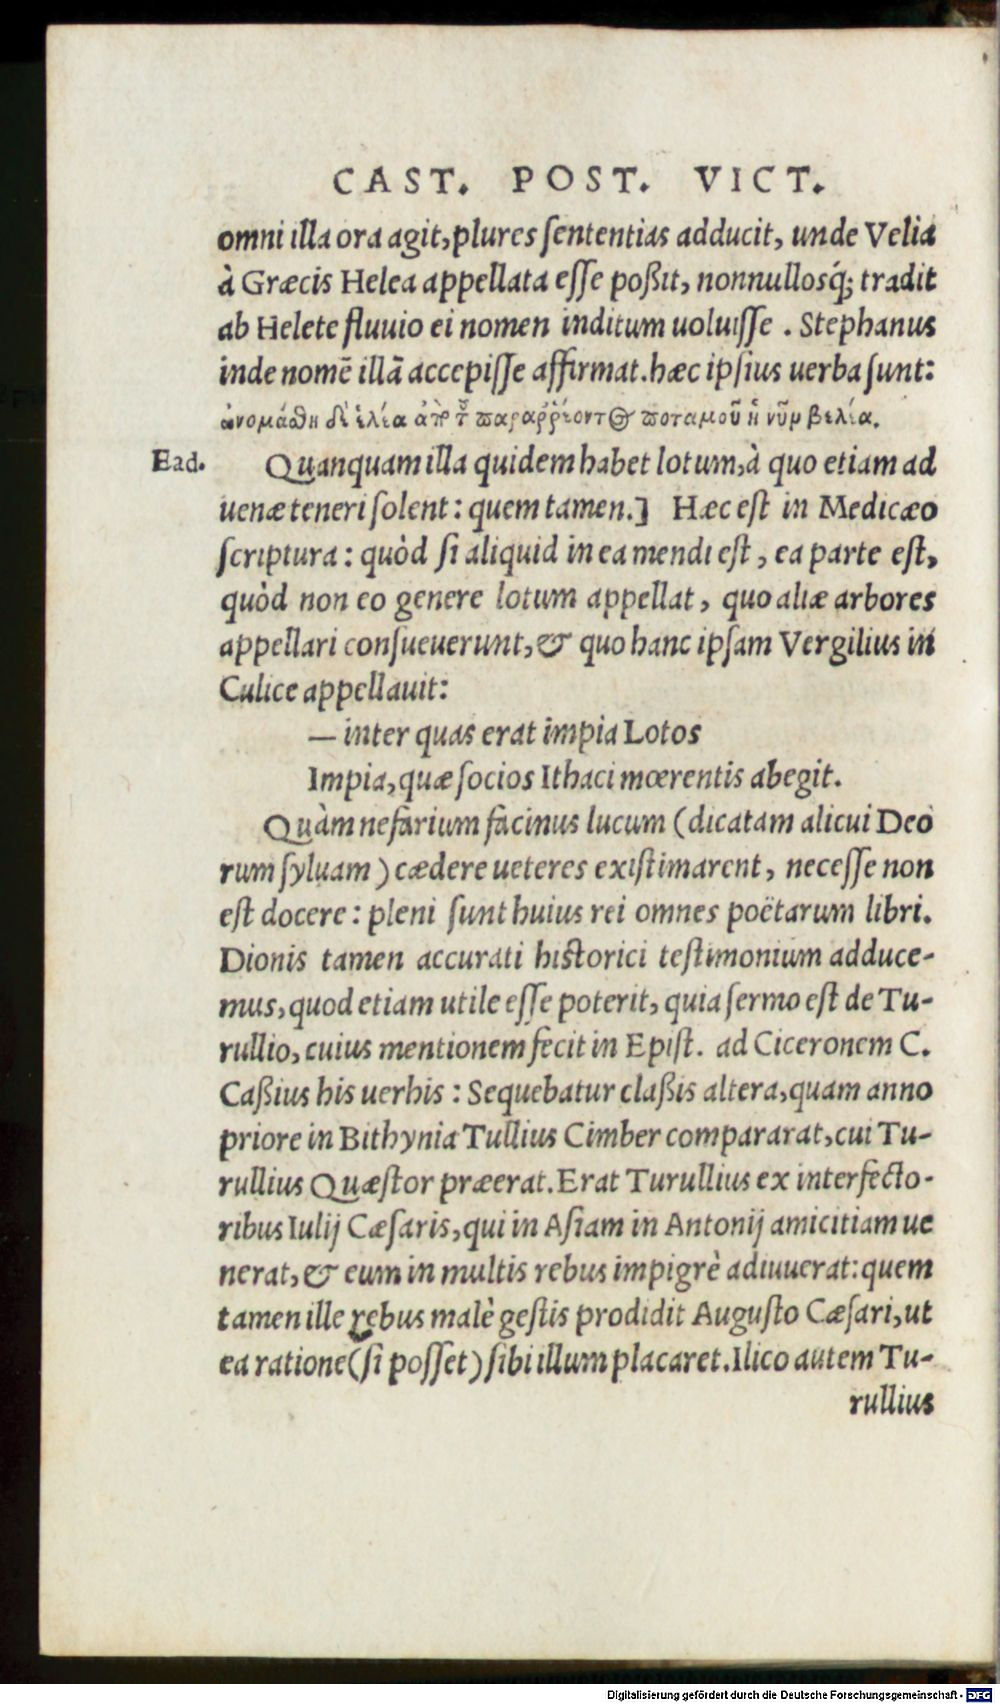 CAST. POST. VICT.
omni illa ora agit, plures ſententias adducit, unde Velia
à Græcis Helea appellata eſſe poßit, nonnullosq́; tradit
ab Helete fluuio ei nomen inditum uoluiſſe . Stephanus
inde nomē illā accepiſſe affirmat. hæc ipſius uerba ſunt:
ὠνομάσθη δὲ ἐλέα ἀπὸ τοῦ παραῤῥέοντος ποταμοῦ ἡ νῦν βελία.
Ead.
Quanquam illa quidem habet lotum, à quo etiam ad
uenæ teneri ſolent: quem tamen.] Hæc eſt in Medicæo
ſcriptura: quòd ſi aliquid in ea mendi eſt, ea parte eſt,
quòd non eo genere lotum appellat, quo aliæ arbores
appellari conſueuerunt, & quo hanc ipſam Vergilius in
Culice appellauit:
— inter quas erat impia Lotos
Impia, quæ ſocios Ithaci mœrentis abegit.
Quàm nefarium facinus lucum (dicatam alicui Deo
rum ſyluam) cædere ueteres exiſtimarent, neceſſe non
eſt docere: pleni ſunt huius rei omnes poëtarum libri.
Dionis tamen accurati hiſtorici teſtimonium adduce-
mus, quod etiam utile eſſe poterit, quia ſermo eſt de Tu-
rullio, cuius mentionem fecit in Epiſt. ad Ciceronem C.
Caßius his uerbis: Sequebatur claßis altera, quam anno
priore in Bithynia Tullius Cimber compararat, cui Tu-
rullius Quæſtor præerat. Erat Turullius ex interfecto-
ribus Iulij Cæſaris, qui in Aſiam in Antonij amicitiam ue
nerat, & eum in multis rebus impigrè adiuuerat: quem
tamen ille rebus malè geſtis prodidit Auguſto Cæſari, ut
ea ratione (ſi poſſet) ſibi illum placaret. Ilico autem Tu-
rullius
Digitalisierung gefördert durch die Deutsche Forschungsgemeinschaft - DFG